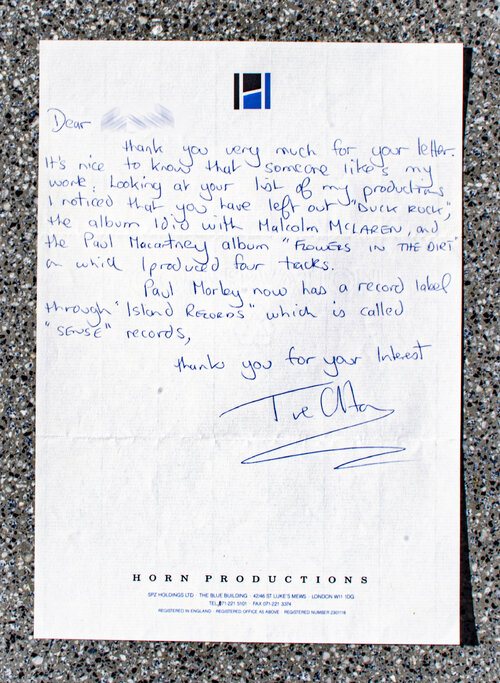 Dear
thank you very much for your letter.
It's nice to know that someone like's my
work. Looking at your list of my productions
I noticed that you have left out "DUCK ROCK",
the album I did with Malcolm McLAREN, and
the Paul Macartney album "FLOWERS IN THE DIRT"
on which I produced four tracks.
Paul Morley now has a record label
through "Island RECORDS" which is called
"SENSE" records,
thank you for your Interest
HORN PRODUCTIONS
SPZ HOLDINGS LTD · THE BLUE BUILDING · 42/46 ST LUKE'S MEWS · LONDON W11 1DG
TEL 071 221 5101 · FAX 071 221 3374
REGISTERED IN ENGLAND · REGISTERED OFFICE AS ABOVE · REGISTERED NUMBER 2301116